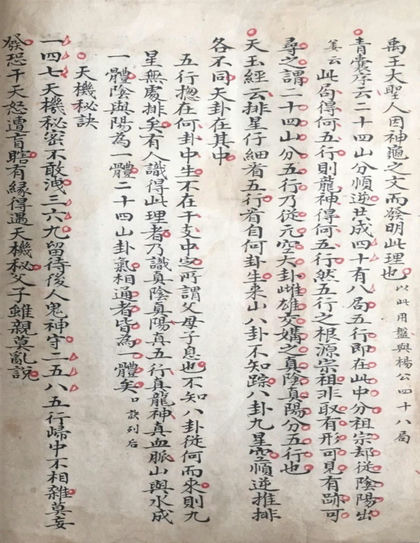 禹王大聖人因神龜之文而發明此理也以此用盤與楊公四十八局
青囊序云二十四山分順逆共成四十有八局五行即在此中分祖宗却從陰陽出
云此局得何五行則龍神得何五行然五行之根源宗祖非取有形可見有跡可
尋之謂二十四山分五行乃從元空大卦雌雄交媾之真陰真陽分五行也
天玉經云排星仔細看五行看自何卦生來山八卦不知踪八卦九星空順逆推排
各不同天卦在其中
五行揔在何卦中生不在干支中定所謂父母子息也不知八卦從何而來則九
星無處排矣有人識得此理者乃識真陰真陽真五行真龍神真血脈山與水成
一體陰與陽為一體二十四山卦氣相通者皆為一體矣口訣列后
天機秘訣
一四七天機秘密不敢洩三六九留待後人鬼神守二五八五行歸中不相雜莫妄
發恐干天怒遭盲瞎有緣得遇天機秘父子雖親莫亂說